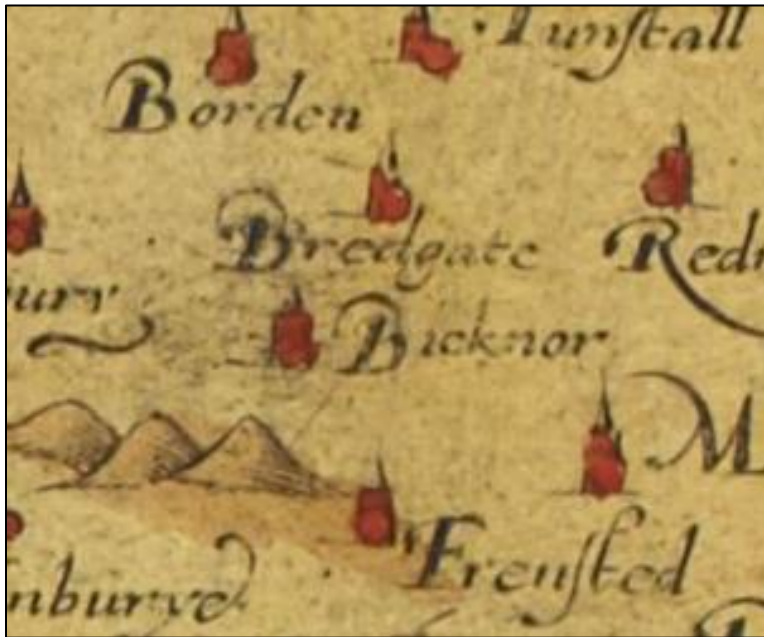 Tunſtall
Borden
Bredgate
ury
Bicknor
M
Frenſted
nburye